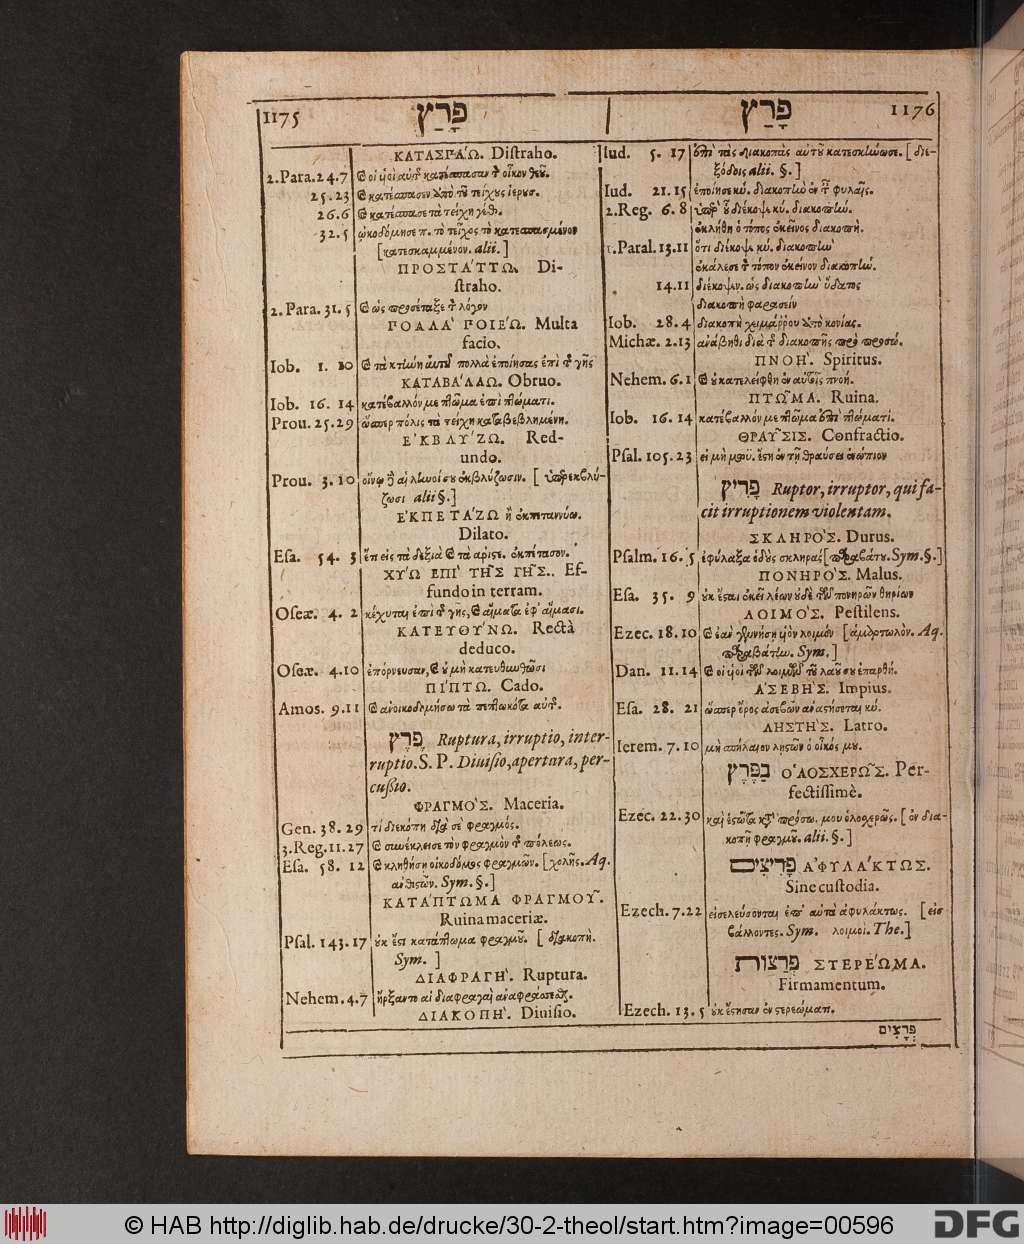 1175 פָּרַץ
ΚΑΤΑΣΠΑΏ. Distraho.
2.Para. 24.7 καὶ οἱ υἱοὶ αὐτῆς κατέσπασαν τὸν οἶκον θεοῦ.
25.23 καὶ κατέσπασεν ἀπὸ τοῦ τείχους ἱερουσ.
26.6 καὶ κατέσπασε τὰ τείχη γὲθ.
32.5 ᾠκοδόμησε π. τὸ τεῖχος τὸ κατεσπασμένον
[κατεσκαμμένον. alii.]
ΠΡΟΣΤΆΤΤΩ. Di-
straho.
2. Para. 31. 5 καὶ ὡς προσέταξε τὸν λόγον
ΠΟΛΛᾺ ΠΟΙΕΏ. Multa
facio.
Iob. 1. 10 καὶ τὰ κτήνη αὐτοῦ πολλὰ ἐποίησας ἐπὶ τῆς γῆς
ΚΑΤΑΒΆΛΛΩ. Obruo.
Iob. 16. 14 κατέβαλλόν με πτῶμα ἐπὶ πτώματι.
Prou. 25.29 ὥσπερ πόλις τὰ τείχη καταβεβλημένη.
ἘΚΒΛΎΖΩ. Red-
undo.
Prou. 3.10 οἴνῳ δὲ αἱ ληνοί σου ἐκβλύζωσιν. [ὑπερεκβλύ-
ζωσι alii §.]
ἘΚΠΕΤΆΖΩ ἢ ἐκπεταννύω.
Dilato.
Esa. 54. 3 ἔτι εἰς τὰ δεξιὰ καὶ τὰ ἀριστε. ἐκπέτασον.
ΧΎΩ ἘΠῚ ΤΗ͂Σ ΓΗ͂Σ. Ef-
fundo in terram.
Oseæ. 4. 2 κέχυται ἐπὶ τῆς γῆς, καὶ αἵματα ἐφ' αἵμασι.
ΚΑΤΕΥΘΎΝΩ. Rectà
deduco.
Oseæ. 4.10 ἐπόρνευσαν, καὶ οὐ μὴ κατευθυνθῶσι
ΠΊΠΤΩ. Cado.
Amos. 9.11 καὶ ἀνοικοδομήσω τὰ πεπτωκότα αὐτῆς.
פֶּרֶץ Ruptura, irruptio, inter-
ruptio. S. P. Diuisio, apertura, per-
cussio.
ΦΡΑΓΜΌΣ. Maceria.
Gen. 38. 29 τί διεκόπη διὰ σὲ φραγμός.
3. Reg. 11.27 καὶ συνέκλεισε τὸν φραγμὸν τῆς πόλεως.
Esa. 58. 12 καὶ κληθήσῃ οἰκοδόμος φραγμῶν. [χολῆς. Aq.
Sym. §.]
ΚΑΤΆΠΤΩΜΑ ΦΡΑΓΜΟΥ͂.
Ruina maceriæ.
Psal. 143. 17 οὐκ ἔστι κατάπτωμα φραγμοῦ. [διακοπὴ.
Sym. ]
ΔΙΑΦΡΑΓΉ. Ruptura.
Nehem. 4.7 ἤρξαντο αἱ διαφραγαὶ ἀναφράσσεσθαι.
ΔΙΑΚΟΠΉ. Diuisio.
פָּרַץ 1176
Iud. 5. 17 ἐπὶ τὰς διακοπὰς αὐτοῦ κατεσκήνωσε. [διε-
ξόδοις alii. §.]
Iud. 21.15 ἐποίησε κύ. διακοπὴν ἐν ταῖς φυλαῖς.
2. Reg. 6. 8 ὑπὲρ οὗ διέκοψε κύ. διακοπὴν.
ἐκλήθη ὁ τόπος ἐκεῖνος διακοπή.
1. Paral. 13.11 ὅτι διέκοψε κύ. διακοπὴν
ἐκάλεσε τὸν τόπον ἐκεῖνον διακοπήν.
14.11 διέκοψεν. ὡς διακοπὴν ὕδατος
διακοπὴ φαρασείν
Iob. 28. 4 διακοπὴ χειμάρρου ἀπὸ κονίας.
Michæ. 2.13 ἀνάβηθι διὰ τῆς διακοπῆς πρὸ προσώ.
ΠΝΟΉ. Spiritus.
Nehem. 6.1 καὶ οὐ κατελείφθη ἐν αὐτοῖς πνοή.
ΠΤΩ͂ΜΑ. Ruina.
Iob. 16. 14 κατέβαλλόν με πτῶμα ἐπὶ πτώματι.
ΘΡΑΥ͂ΣΙΣ. Confractio.
Psal. 105. 23 εἰ μὴ μωϋ. ἔστη ἐν τῇ θραύσει ἐνώπιον
פָּרִיץ Ruptor, irruptor, qui fa-
cit irruptionem violentam.
ΣΚΛΗΡΌΣ. Durus.
Psalm. 16. 5 ἐφύλαξα ὁδοὺς σκληράς [παραβάτου. Sym. §.]
ΠΟΝΗΡΌΣ. Malus.
Esa. 35. 9 οὐκ ἔσται ἐκεῖ λέων οὐδὲ τῶν πονηρῶν θηρίων
ΛΟΙΜΌΣ. Pestilens.
Ezec. 18.10 καὶ ἐὰν γεννήσῃ υἱὸν λοιμόν [ἁμαρτωλὸν. Aq.
παραβάτην. Sym.]
Dan. 11.14 καὶ οἱ υἱοὶ τῶν λοιμῶν τοῦ λαοῦ σου ἐπαρθή.
ἈΣΕΒΉΣ. Impius.
Esa. 28. 21 ὥσπερ ὄρος ἀσεβῶν ἀναστήσεται κύ.
ΛΗΣΤΉΣ. Latro.
Ierem. 7. 10 μὴ σπήλαιον λῃστῶν ὁ οἶκός μου.
בַּפֶּרֶץ ὉΛΟΣΧΕΡΩ͂Σ. Per-
fectissimè.
Ezec. 22. 30 καὶ ἑστῶτα κατὰ πρόσω. μου ὁλοσχερῶς. [ἐν δια-
κοπῇ φραγμοῦ. alii. §.]
פָּרִיצִים ἈΦΥΛΆΚΤΩΣ.
Sine custodia.
Ezech. 7.22 εἰσελεύσονται ἐπ' αὐτὰ ἀφυλάκτως. [εἰσ
βάλλοντες. Sym. λοιμοὶ. The.]
פְּרָצוֹת ΣΤΕΡΈΩΜΑ.
Firmamentum.
Ezech. 13. 5 οὐκ ἔστησαν ἐν στερεώματι.
פְּרָצִים
© HAB http://diglib.hab.de/drucke/30-2-theol/start.htm?image=00596
DFG